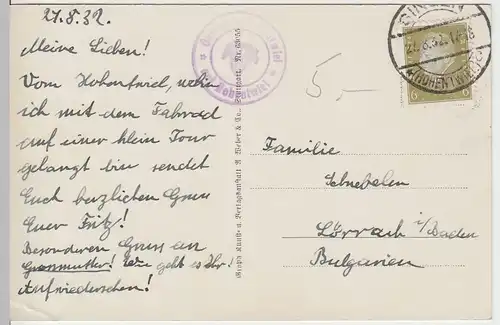 21.8.32.
Meine Lieben!
Vom Hohentwiel, wohin
ich mit dem Fahrrad
auf einer klein Tour
gelangt bin sendet
Euch herzlichen Gruss
Euer Fritz!
Besonderen Gruss an
Grossmutter! Wie geht es Ihr!
Aufwiedersehen!
Hohentwiel
Graph. Kunst- u. Verlagsanstalt A. Weber & Co., Stuttgart. Nr. 63955
5,-
SINGEN
21.8.32.
(HOHENTWIEL)
6 6
Familie
Schnebelen
Lörrach i/Baden
Bulgarien